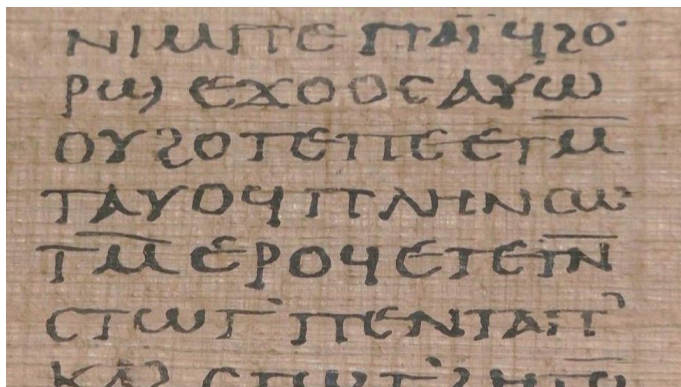 ⲛⲓⲙⲡⲉ ⲡⲁⲓ̈ ϥϩⲟ
ⲣϣ ⲉϫⲟⲟⲥ ⲁⲩⲱ
ⲟⲩϩⲟⲧⲉⲡⲉⲉⲧⲙ̄
ⲧⲁⲩⲟϥ ⲡⲗⲏⲛ ⲥⲱ
ⲧⲙ̄ ⲉⲣⲟϥ ⲉⲧⲉⲧⲛ̄
ⲥⲧⲱⲧ ⲡⲉⲛⲧⲁⲡ
ⲕⲁϩ ⲥⲧⲱⲧ